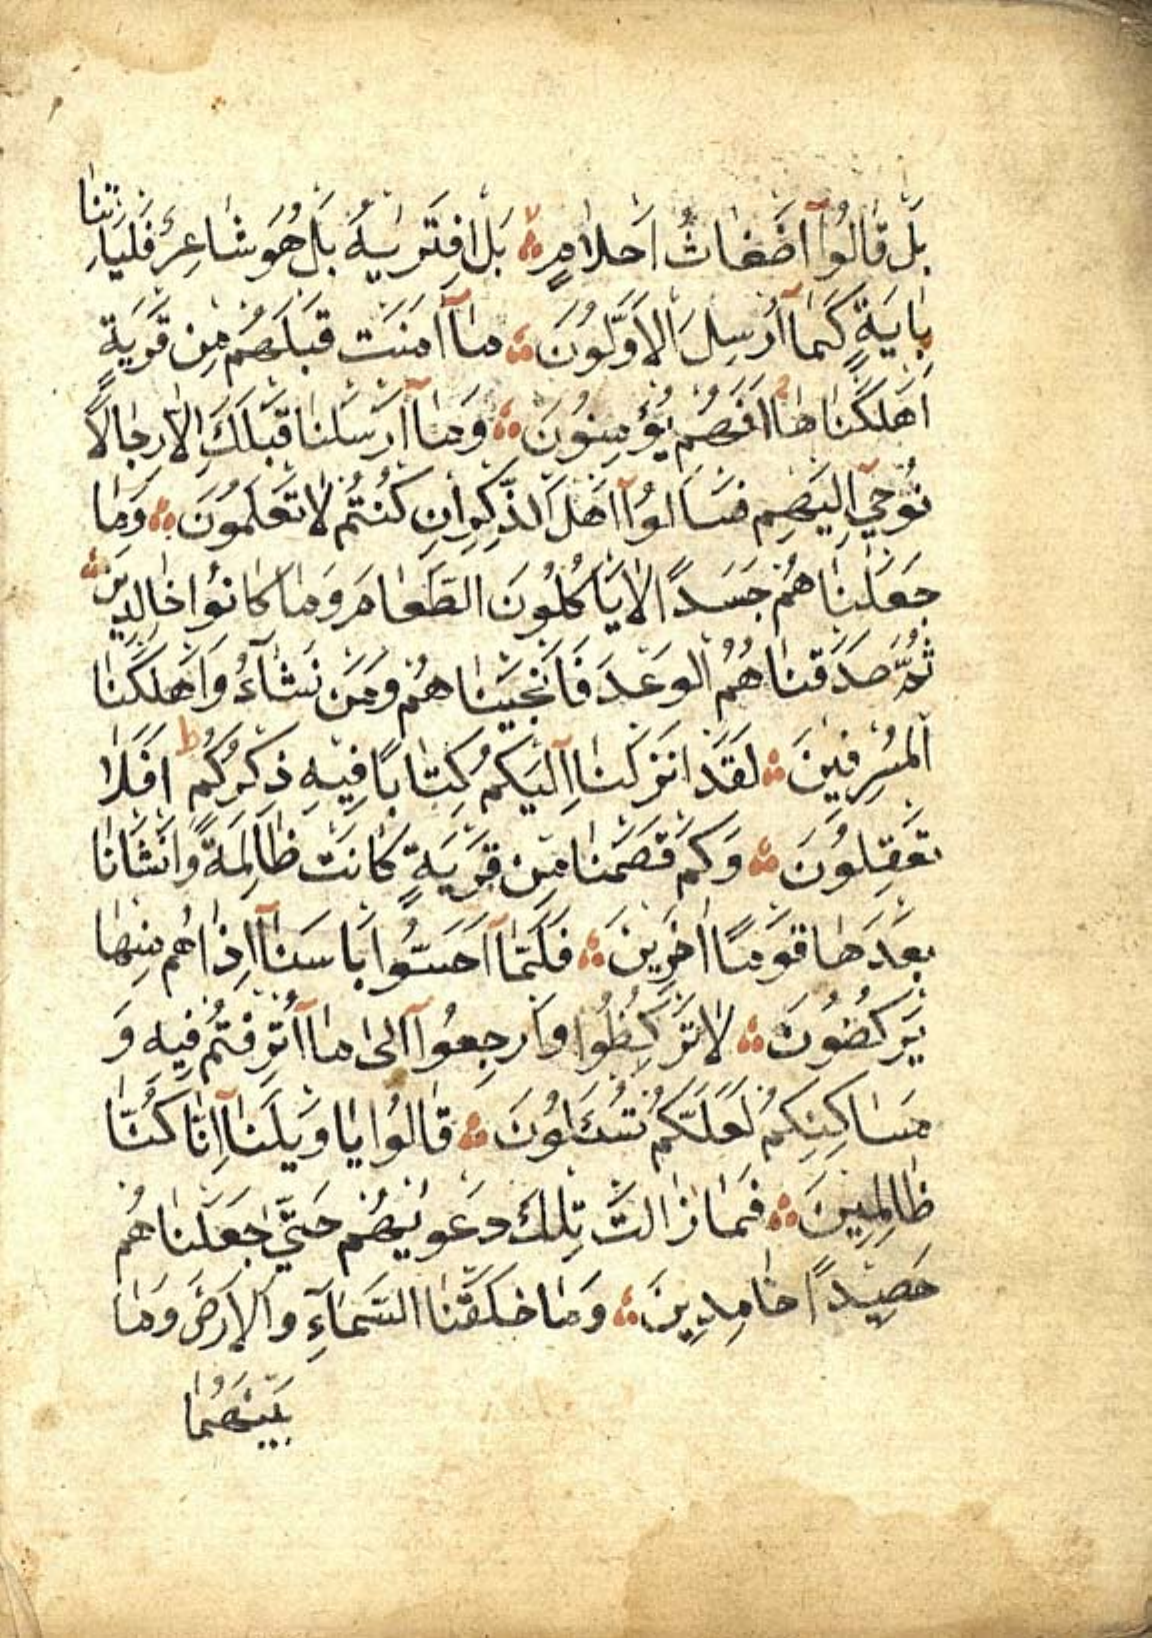 بَلْ قَالُوا أَضْغَاثُ اَحْلَامٍ ۞ بَلِ افْتَرٰيهُ بَلْ هُوَ شَاعِرٌ فَلْيَاْتِنَا
بِاٰيَةٍ كَمَا اُرْسِلَ الْاَوَّلُونَ ۞ مَا اٰمَنَتْ قَبْلَهُمْ مِنْ قَرْيَةٍ
اَهْلَكْنَاهَا اَفَهُمْ يُؤْمِنُونَ ۞ وَمَا اَرْسَلْنَا قَبْلَكَ اِلَّا رِجَالًا
نُوحِي اِلَيْهِمْ فَسْـَٔالُوا اَهْلَ الذِّكْرِ اِنْ كُنْتُمْ لَا تَعْلَمُونَ ۞ وَمَا
جَعَلْنَاهُمْ جَسَدًا لَا يَأْكُلُونَ الطَّعَامَ وَمَا كَانُوا خَالِدِينَ ۞
ثُمَّ صَدَقْنَاهُمُ الْوَعْدَ فَاَنْجَيْنَاهُمْ وَمَنْ نَشَآءُ وَاَهْلَكْنَا
الْمُسْرِفِينَ ۞ لَقَدْ اَنْزَلْنَا اِلَيْكُمْ كِتَابًا فِيهِ ذِكْرُكُمْ ط اَفَلَا
تَعْقِلُونَ ۞ وَكَمْ قَصَمْنَا مِنْ قَرْيَةٍ كَانَتْ ظَالِمَةً وَاَنْشَاْنَا
بَعْدَهَا قَوْمًا اٰخَرِينَ ۞ فَلَمَّا اَحَسُّوا بَاْسَنَا اِذَا هُمْ مِنْهَا
يَرْكُضُونَ ۞ لَا تَرْكُظُوا وَارْجِعُوا اِلٰى مَا اُتْرِفْتُمْ فِيهِ وَ
مَسَاكِنِكُمْ لَعَلَّكُمْ تُسْـَٔلُونَ ۞ قَالُوا يَا وَيْلَنَا اِنَّا كُنَّا
ظَالِمِينَ ۞ فَمَا زَالَتْ تِلْكَ دَعْوٰيهُمْ حَتَّى جَعَلْنَاهُمْ
حَصِيدًا خَامِدِينَ ۞ وَمَا خَلَقْنَا السَّمَآءَ وَالْاَرْضَ وَمَا
بَيْنَهُمَا